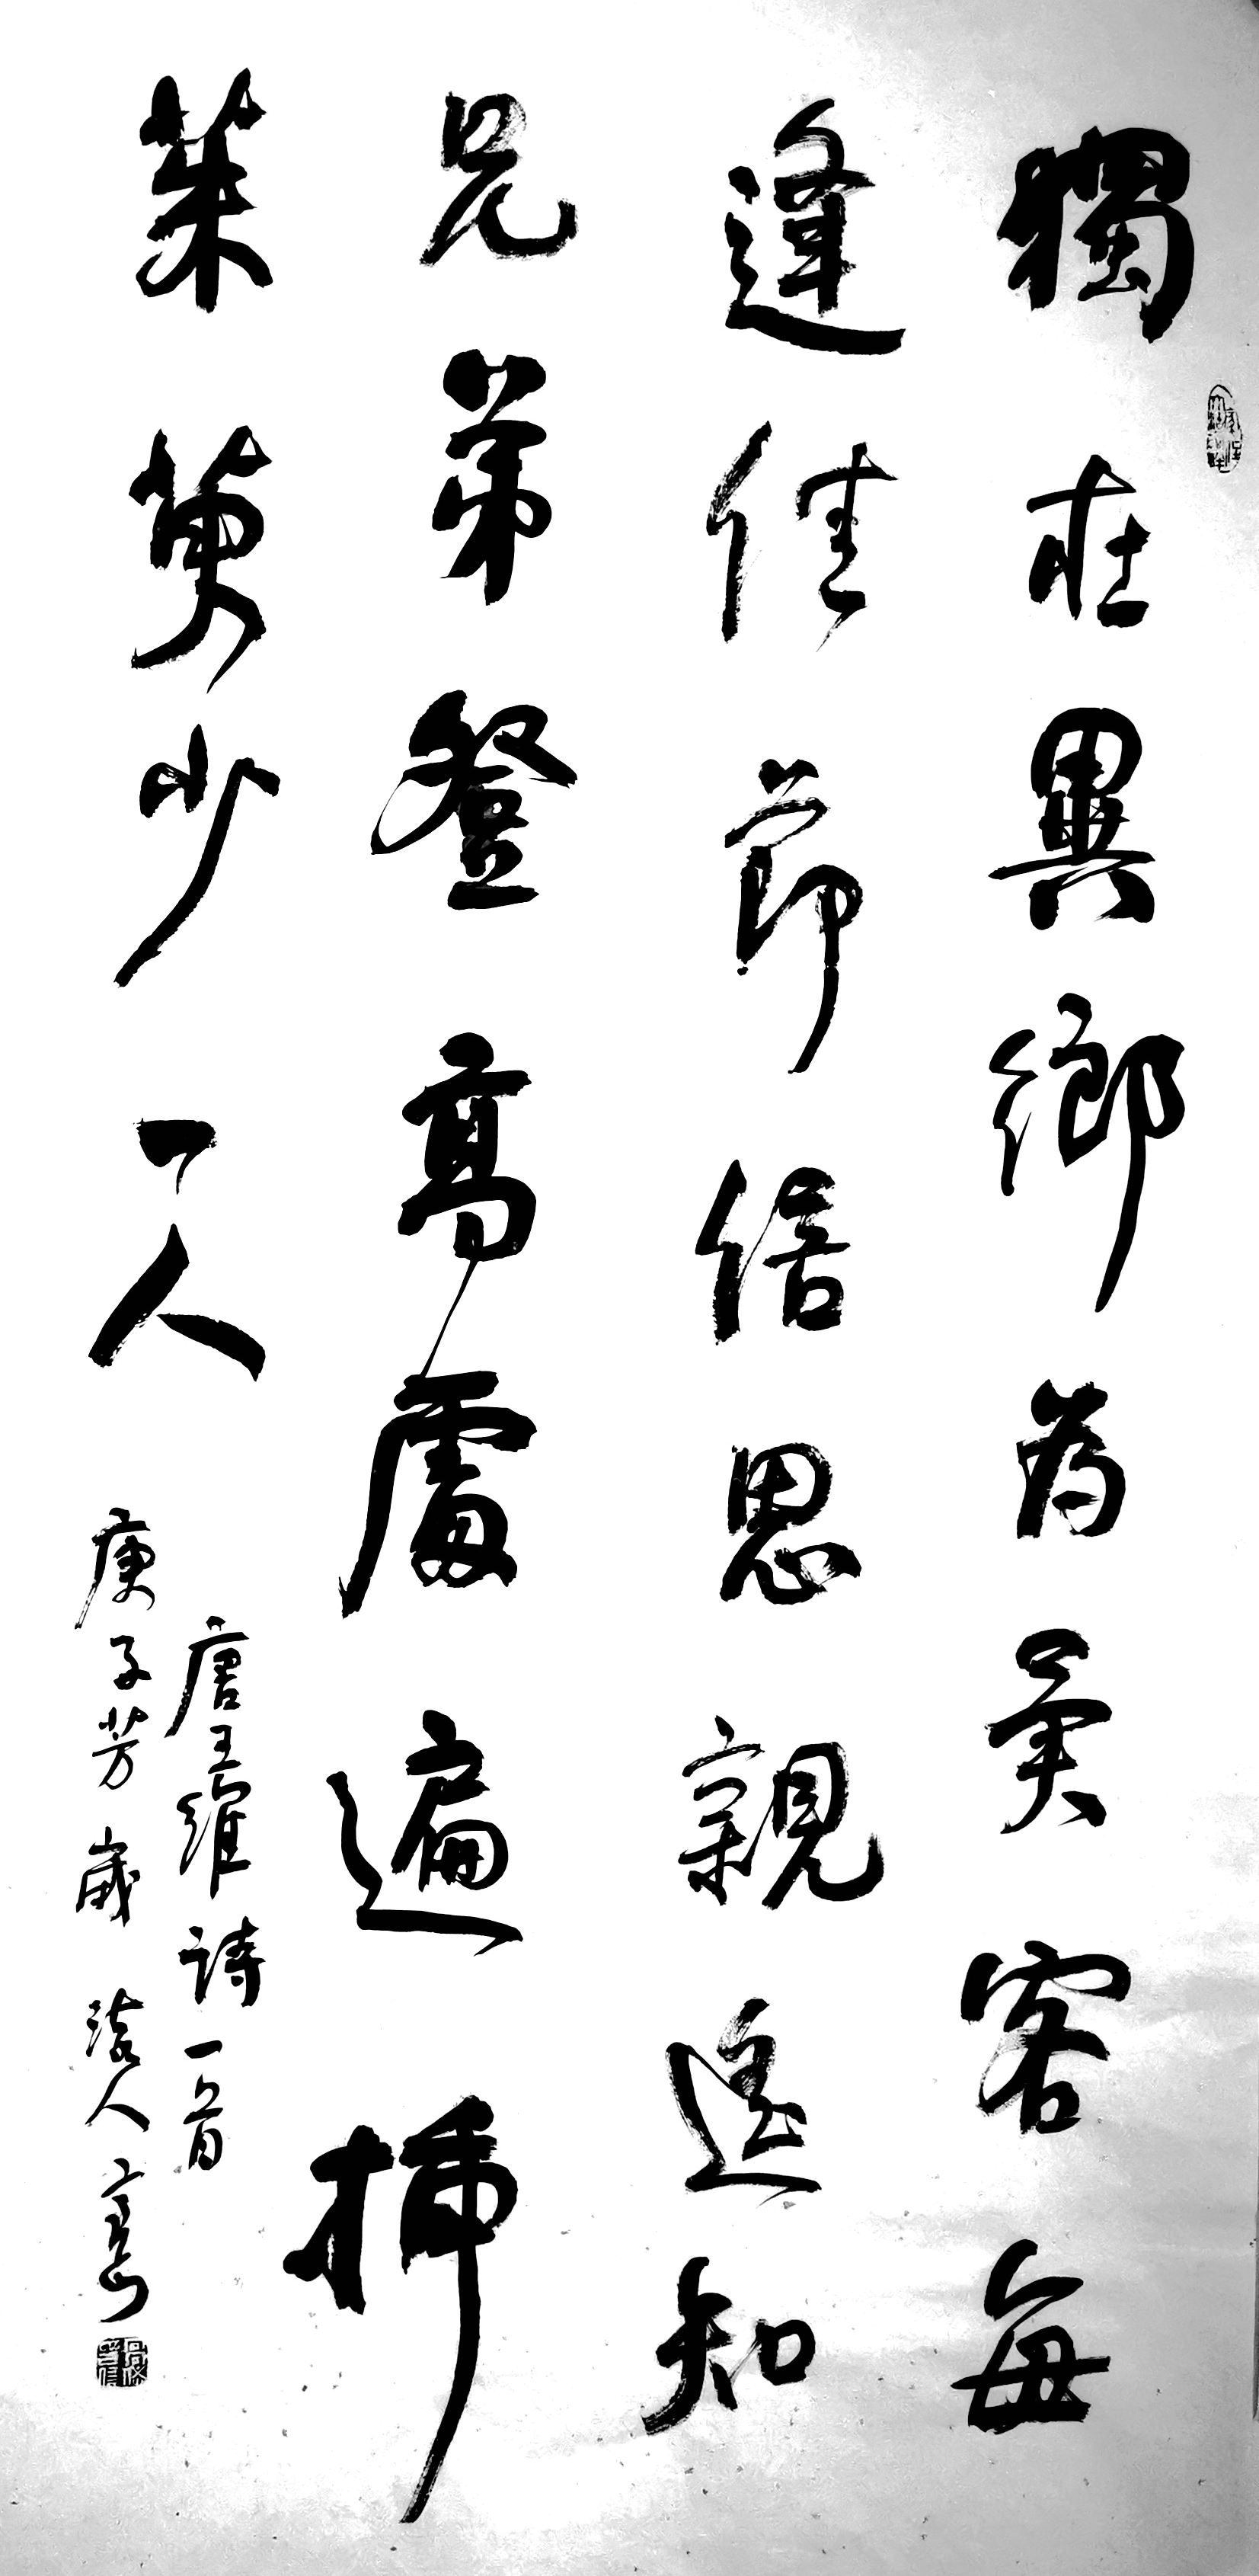 獨在異鄉為異客每
逢佳節倍思親遙知
兄弟登高處遍插
茱萸少一人
唐王維詩一首
庚子芳歲